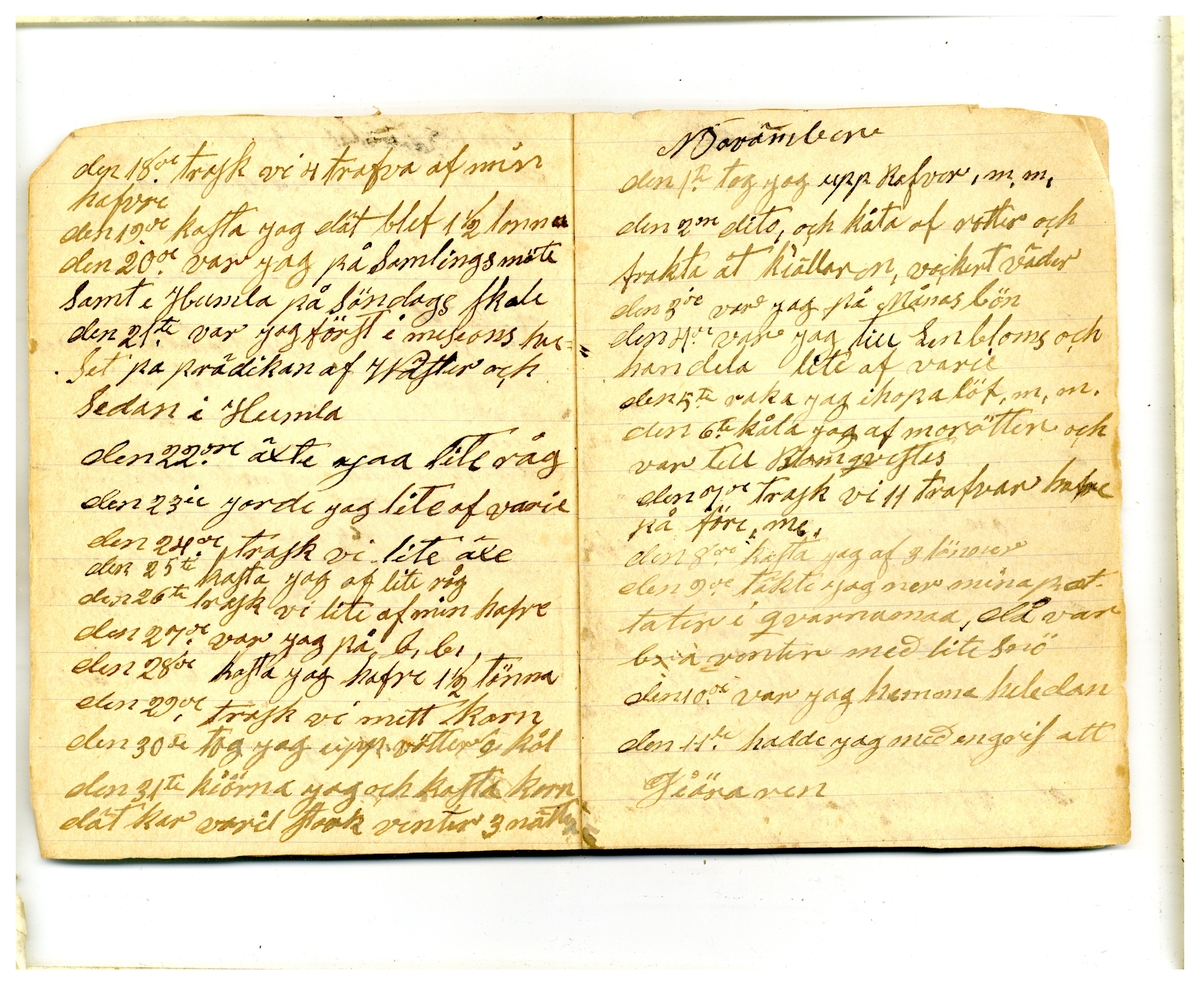 den 18de trask vi 4 trafva af min
hafvre
den 19de kasta yag dät blef 1 1/2 tonna
den 20de var yag på Samlingsmöte
Samt i Humla på Söndags skole
den 21ste var yag först i misions hu=
set pa prädikan af och
Sedan i Humla
den 22dre äxte yaa lite råg
den 23ie yorde yag lite af varie
den 24de trask vi lite äxe
den 25te kasta yag af lite råg
den 26te trask vi lite af min hafre
den 27de var yag på, b, b,
den 28de kasta yag hafre 1 1/2 tönna
den 29de trask vi mitt korn
den 30de tog yag upp rötter o kål
den 31te hiörna yag och kasta korn
dät har varit stark venter 3 nätter
Novämbere
den 1te tog yag upp Rofver, m, m,
den 2dre dito, och kåla af rotter och
frakta åt kiällaren, vackert väder
den 3de var yag på Månas bön
den 4de var yag till Enbloms och
handela lite af varie
den 5te raka yag ihopa löf, m, m.
den 6te kåla yag af morötter och
var till Blomqvistes
den 7de trask vi 11 trafvar hafre
på före, me,
den 8de kasta yag af 3 tönner
den 9de täkte yag ner mina pot-
tater i qvarnamaa, då var
bra venter med lite Snö
den 10de var yag hemma heledan
den 11te hadde yag med engeif att